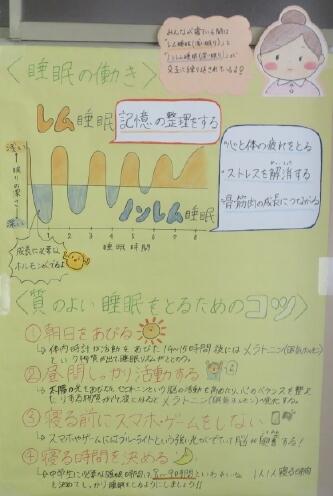 みんなが寝ている間は
"レム睡眠(浅い眠り)"と
"ノンレム睡眠(深い眠り)"が
交互に繰り返されているよ?
<睡眠の働き>
レム睡眠
記憶の整理をする
浅い
眠りの深さ
深い
・心と体の疲れをとる
・ストレスを解消する
・骨・筋肉の成長につながる
ノンレム睡眠
1 2 3 4 5 6 7 8
睡眠時間
成長に必要な
ホルモンがでるよ
<質のよい睡眠をとるためのコツ>
①朝日をあびる
↳体内時計が活動をあびた 14〜15時間後には メラトニン
という物質が出て
②昼間しっかり活動する
↳太陽の光をあびたら、セロトニンという脳の活動を高めたり、心のバランスを整え
③寝る前にスマホ・ゲームをしない
↳スマホやゲームにはブルーライトという強い光がでていて脳が興奮する!
④寝る時間を決める
↳中学生に必要な睡眠時間は8〜9時間といわれている 1人1人寝る時間
を決めてしっかり睡眠をとるようにしましょう!!